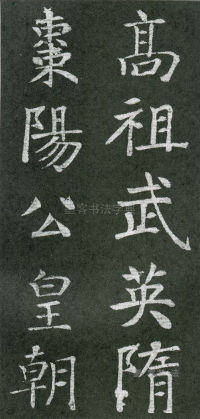 高祖武英隋
棗陽公皇朝